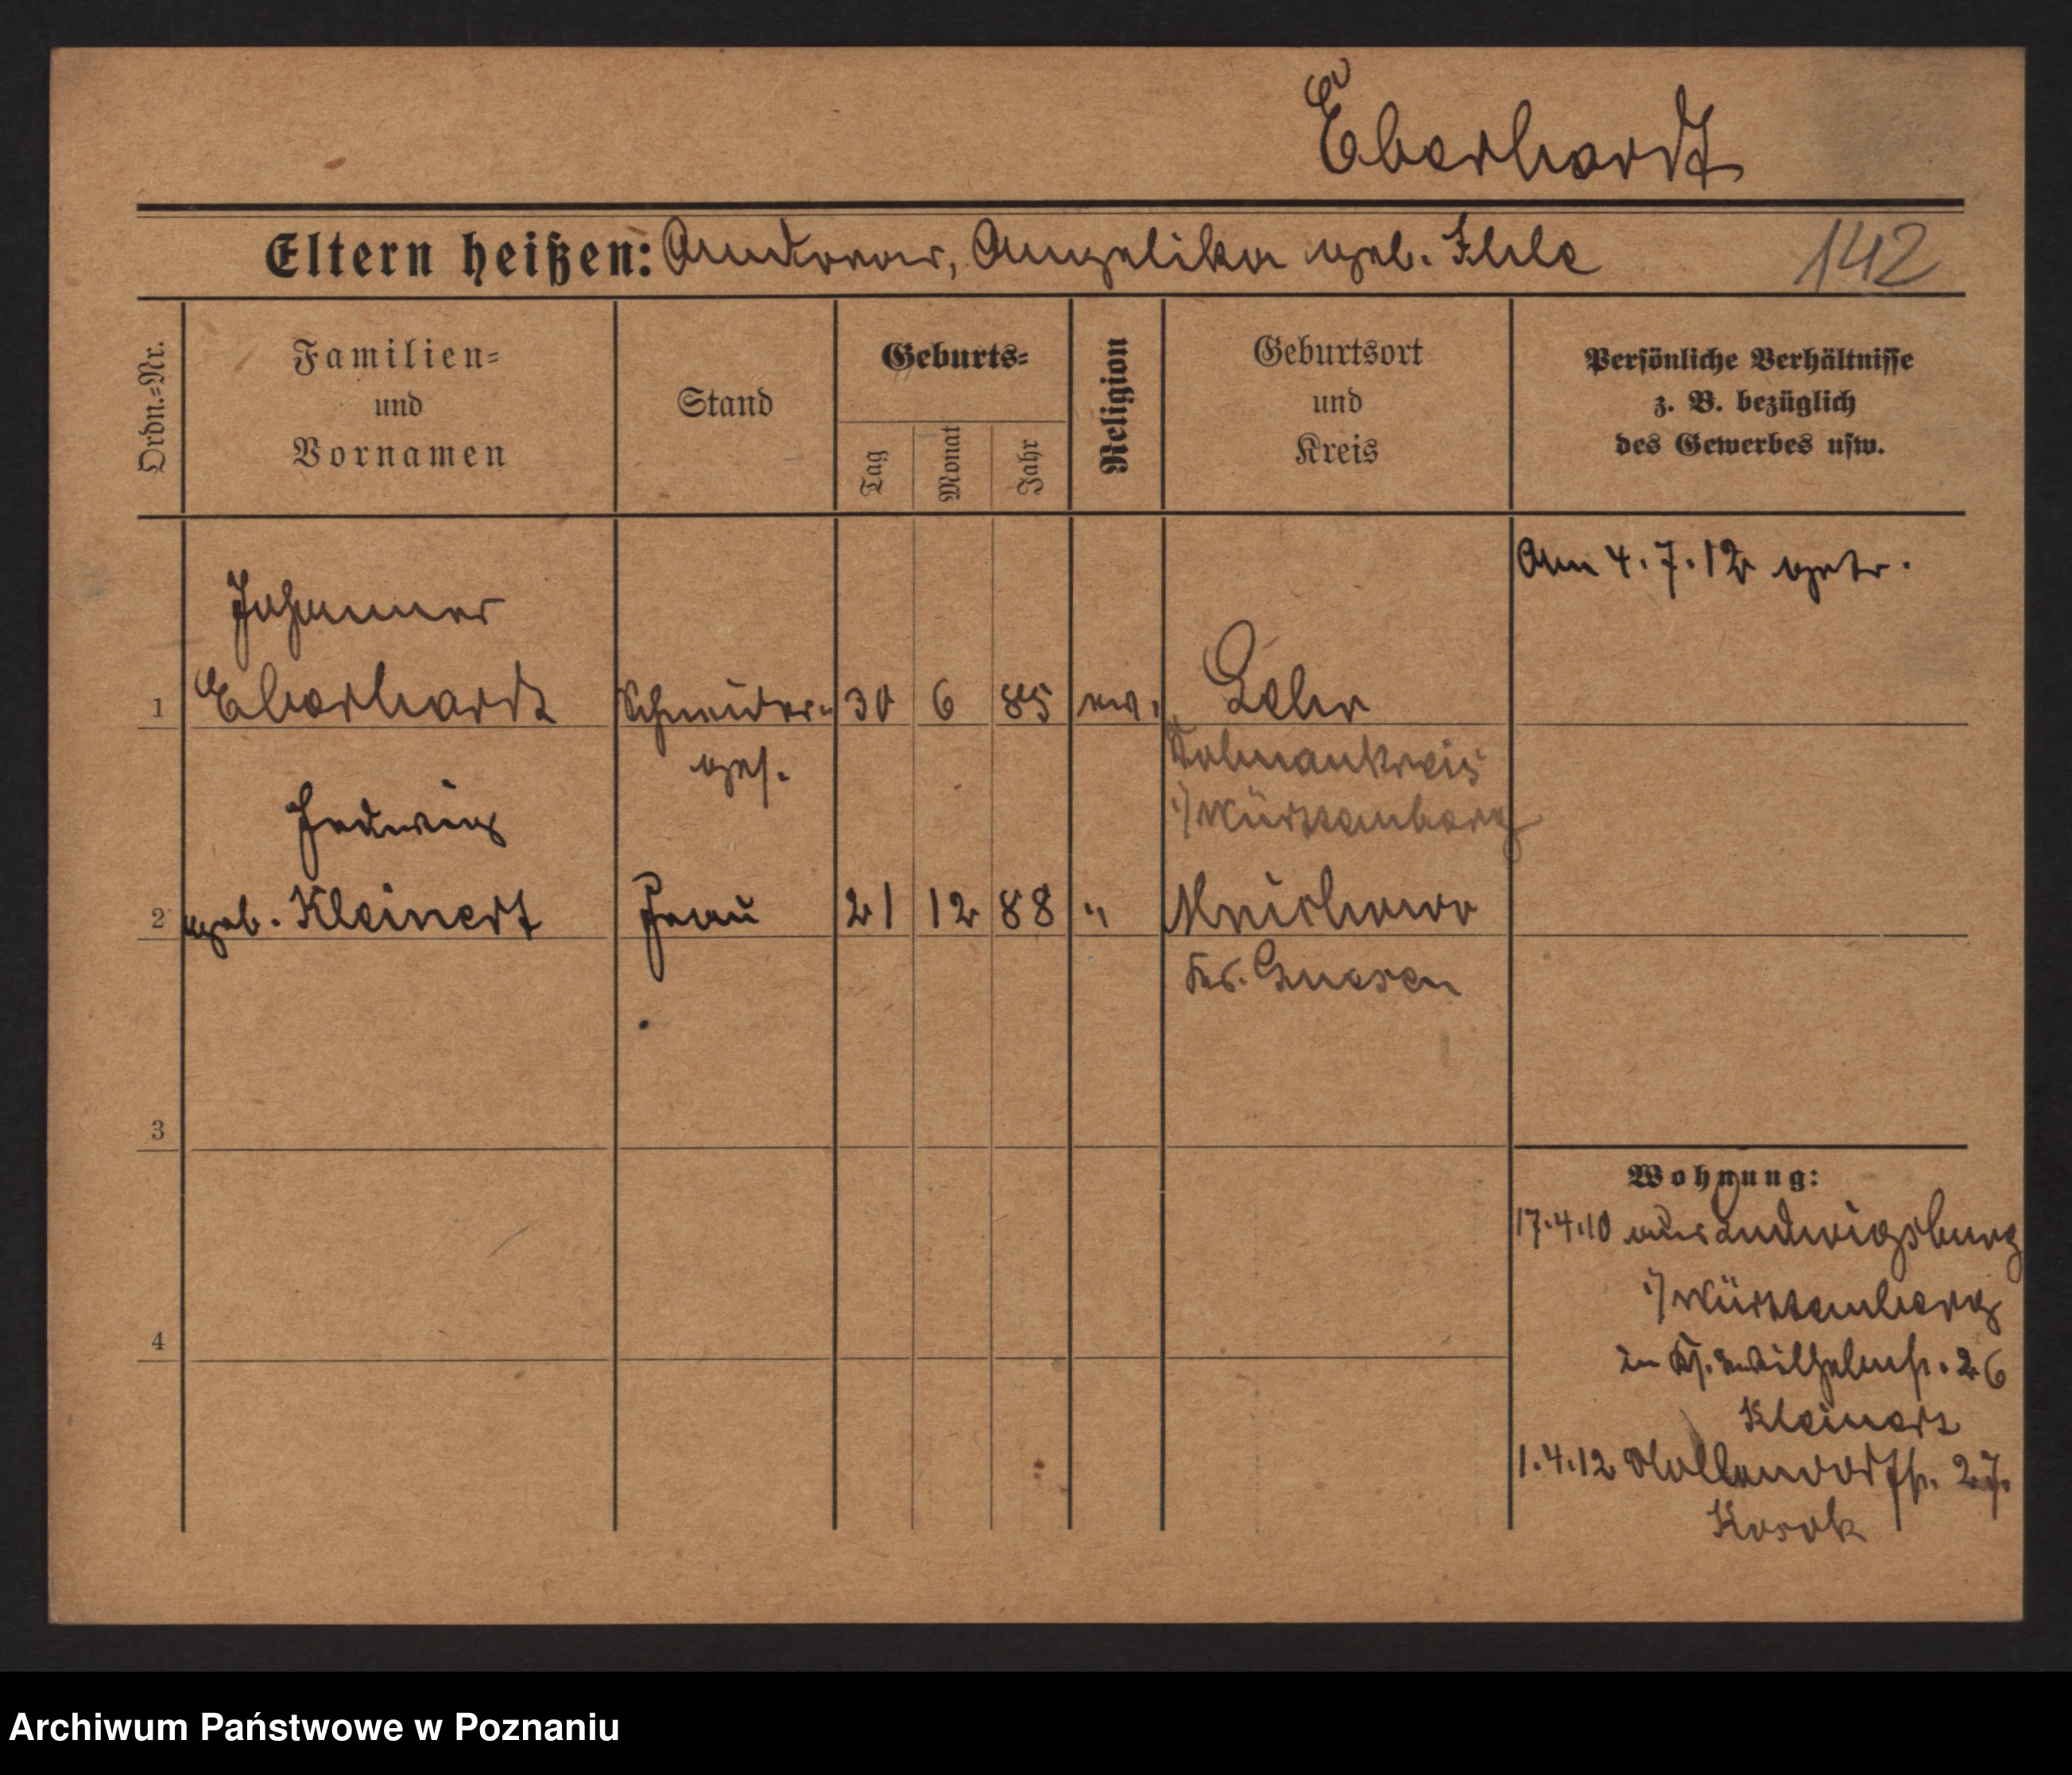 Eberhardt
Eltern heißen: Andreas, Angelika geb. Ihle 142
Ordn.-Nr.
Familien-
und
Vornamen
Stand
Geburts-
Tag
Monat
Jahr
Religion
Geburtsort
und
Kreis
Persönliche Verhältnisse
z. B. bezüglich
des Gewerbes usw.
Am 4.7.12 getr.
Johannes
1 Eberhardt Schneider- 30 6 85 ev. Lehr
ges.
Donaukreis
i/Württemberg
Hedwig
2 geb. Kleinert Frau 21 12 88 " Mnichowo
Kr. Gnesen
3
4
Wohnung:
17.4.10 aus Ludwigsburg
i/Württemberg
26
Kleinert
1.4.12 27.
Kosok
Archiwum Państwowe w Poznaniu